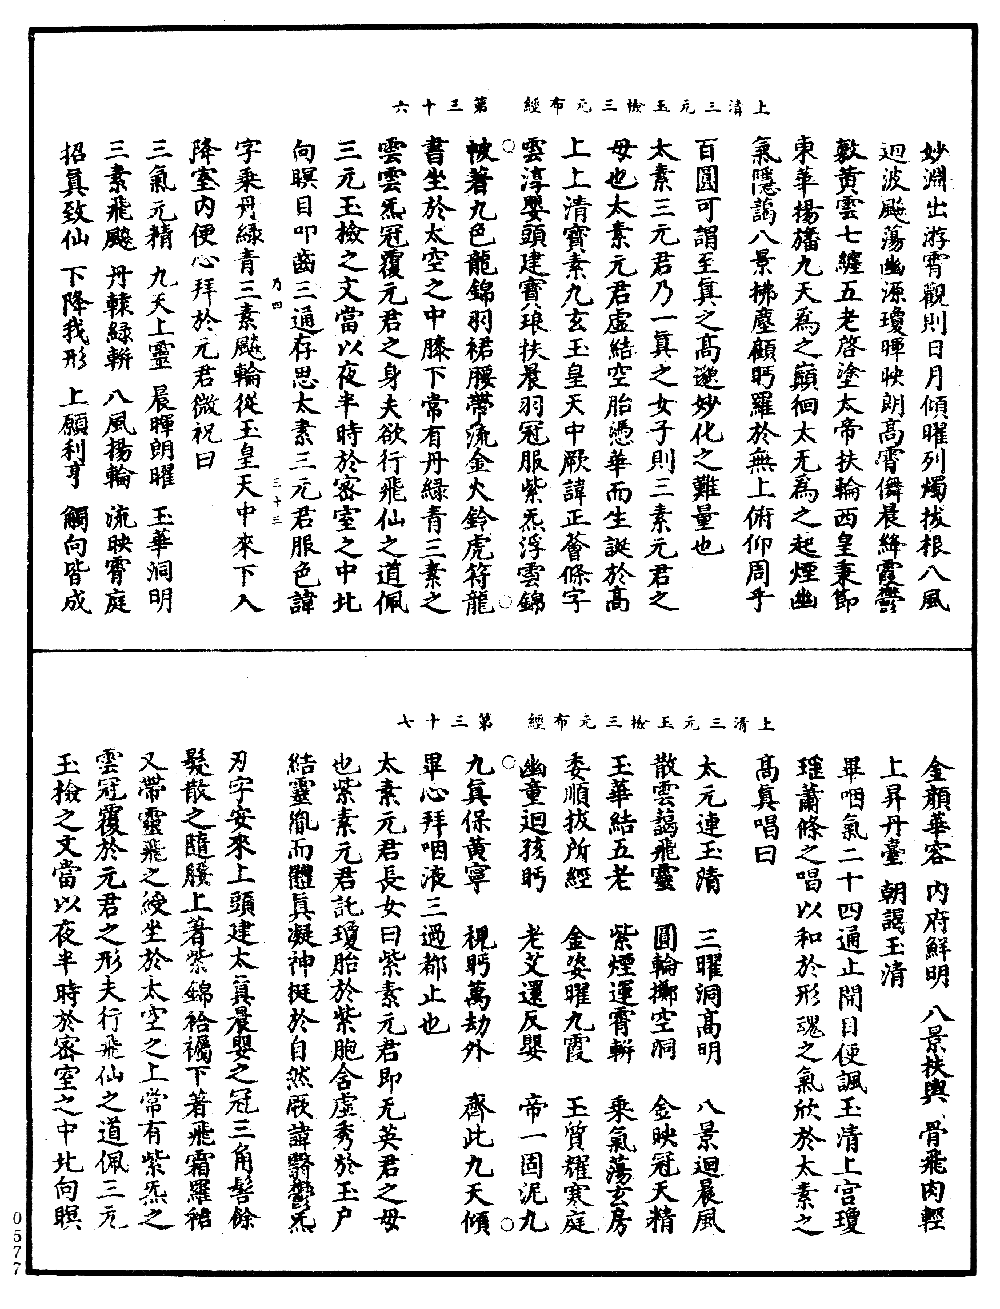 上清三元玉檢三元布經　第三十六
妙淵出游霄觀則日月傾曜列燭拔根八風
迴波飈蕩幽源瓊暉映朗高霄儛晨絳霞鬱
敷黃雲七纏五老啓塗太帝扶輪西皇秉節
東華揚旛九天爲之巔徊太无爲之起煙幽
氣隱藹八景拂塵顧眄羅於無上俯仰周乎
百圓可謂至真之高邈妙化之難量也
太素三元君乃一真之女子則三素元君之
母也太素元君虛結空胎憑華而生誕於高
上上清寶素九玄玉皇天中厥諱正薈條字
雲淳嬰頭建寶琅扶晨羽冠服紫炁浮雲錦
帔著九色龍錦羽裙腰帶流金火鈴虎符龍
書坐於太空之中膝下常有丹綠青三素之
雲雲炁冠覆元君之身夫欲行飛仙之道佩
三元玉檢之文當以夜半時於密室之中北
向瞑目叩齒三通存思太素三元君服色諱
乃四　三十三
字乘丹綠青三素飈輪從玉皇天中來下入
降室内便心拜於元君微祝曰
三氣元精　九天上靈　晨暉朗曜　玉華洞明
三素飛飈　丹輬綠輧　八風揚輪　流映霄庭
招真致仙　下降我形　上願利亨　觸向皆成
上清三元玉檢三元布經　第三十七
金顏華容　内府鮮明　八景扶輿　骨飛肉輕
上昇丹臺　朝謁玉清
畢咽氣二十四通止開目便諷玉清上宫瓊
瑶蕭條之唱以和於形魂之氣欣於太素之
高真唱曰
太元連玉清　三曜洞高明　八景迴晨風
散雲藹飛靈　圓輪擲空洞　金映冠天精
玉華結五老　紫煙運霄輧　乘氣蕩玄房
委順拔所經　金姿曜九霞　玉質耀寒庭
幽童迴孩眄　老艾還反嬰　帝一固泥九
九真保黃寧　視眄萬劫外　齊此九天傾
畢心拜咽液三過都止也
太素元君長女曰紫素元君即无英君之母
也紫素元君託瓊胎於紫胞含虛秀於玉户
結靈胤而體真凝神挺於自然厥諱翳鬱炁
刃字安來上頭建太真晨嬰之冠三角髻餘
髮散之隨腰上著紫錦袷襡下著飛霜羅裙
又帶靈飛之綬坐於太空之上常有紫炁之
雲冠覆於元君之形夫行飛仙之道佩三元
玉檢之文當以夜半時於密室之中北向瞑
0577